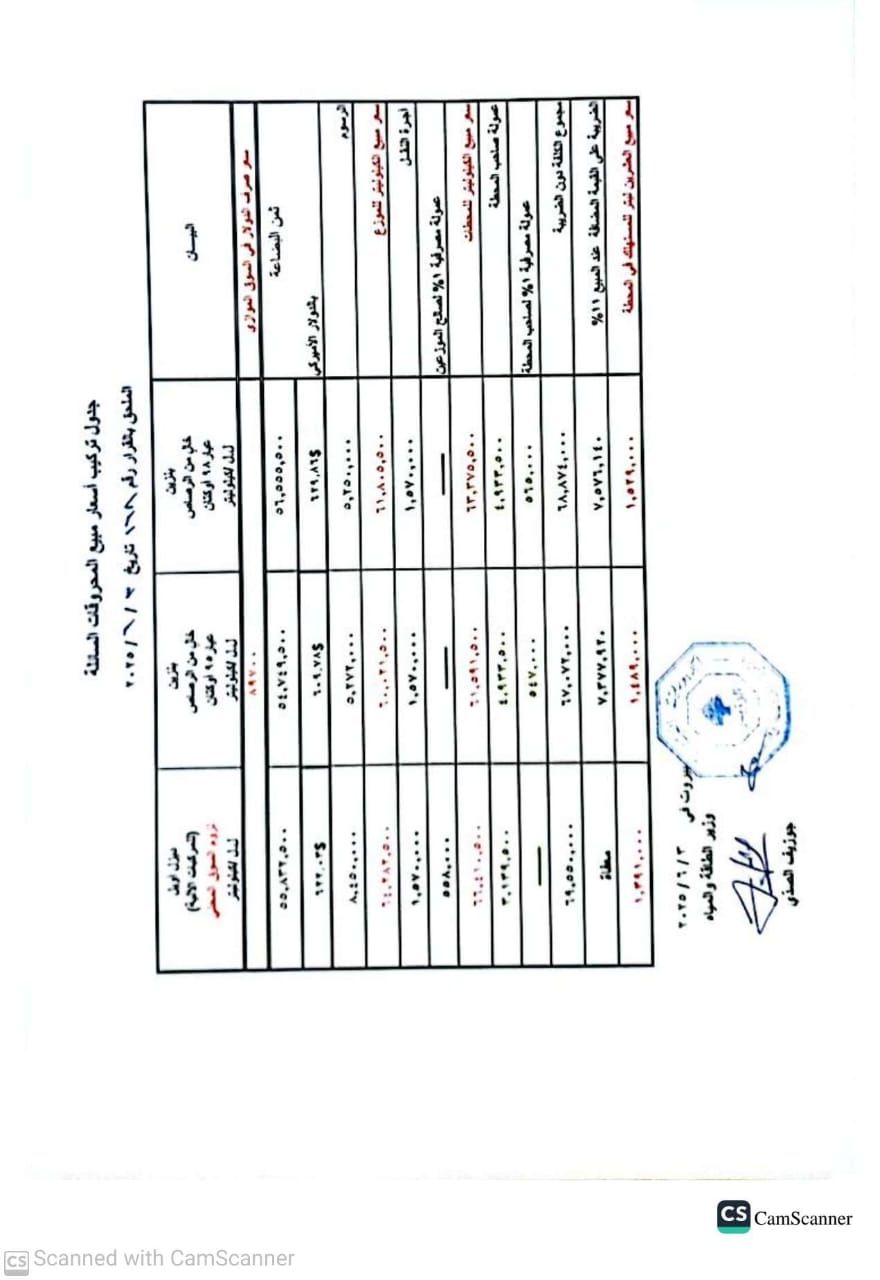 جدول تركيب أسعار مبيع المحروقات السائلة
الملحق بالقرار رقم ١٦٨ تاريخ ٢٠٢٥/٦/٣
البيان
بنزين خالي من الرصاص عيار ٩٨ أوكتان ل.ل/كيلوليتر
بنزين خالي من الرصاص عيار ٩٥ أوكتان ل.ل/كيلوليتر
ديزل أويل (المركبات الآلية) لزوم السوق المحلي ل.ل/كيلوليتر
سعر صرف الدولار في السوق الموازي ٨٩٧٠٠
ثمن البضاعة ٥٦,٥٥٥,٥٠٠ ٥٤,٧٤٩,٥٠٠ ٥٥,٨٣٢,٥٠٠
بالدولار الأميركي ٦٢٩.٨٦$ ٦٠٩.٧٨$ ٦٢٢.٠٣$
الرسوم ٥,٢٥٠,٠٠٠ ٥,٢٧٢,٠٠٠ ٨,٤٥٠,٠٠٠
سعر مبيع الكيلوليتر للموزع ٦١,٨٠٥,٥٠٠ ٦٠,٠٢١,٥٠٠ ٦٤,٢٨٢,٥٠٠
أجرة النقل ١,٥٧٠,٠٠٠ ١,٥٧٠,٠٠٠ ١,٥٧٠,٠٠٠
عمولة مصرفية ١% لصالح الموزعين — — ٥٥٨,٠٠٠
سعر مبيع الكيلوليتر للمحطات ٦٣,٣٧٥,٥٠٠ ٦١,٥٩١,٥٠٠ ٦٦,٤١٠,٥٠٠
عمولة صاحب المحطة ٤,٩٣٣,٥٠٠ ٤,٩٣٣,٥٠٠ ٣,١٣٩,٥٠٠
عمولة مصرفية ١% لصاحب المحطة ٥٦٥,٠٠٠ ٥٤٧,٠٠٠ —
مجموع الكلفة دون الضريبة ٦٨,٨٧٤,٠٠٠ ٦٧,٠٧٢,٠٠٠ ٦٩,٥٥٠,٠٠٠
الضريبة على القيمة المضافة عند المبيع ١١% ٧,٥٧٦,١٤٠ ٧,٣٧٧,٩٢٠ معفاة
سعر مبيع العشرين ليتر للمستهلك في المحطة ١,٥٢٩,٠٠٠ ١,٤٨٩,٠٠٠ ١,٣٩١,٠٠٠
بيروت في ٢٠٢٥/٦/٣
وزير الطاقة والمياه
جوزيف الصدي
CS CamScanner
CS Scanned with CamScanner